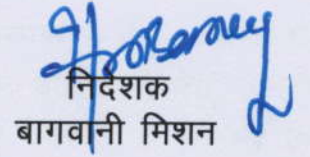 निदेशक
बागवानी मिशन